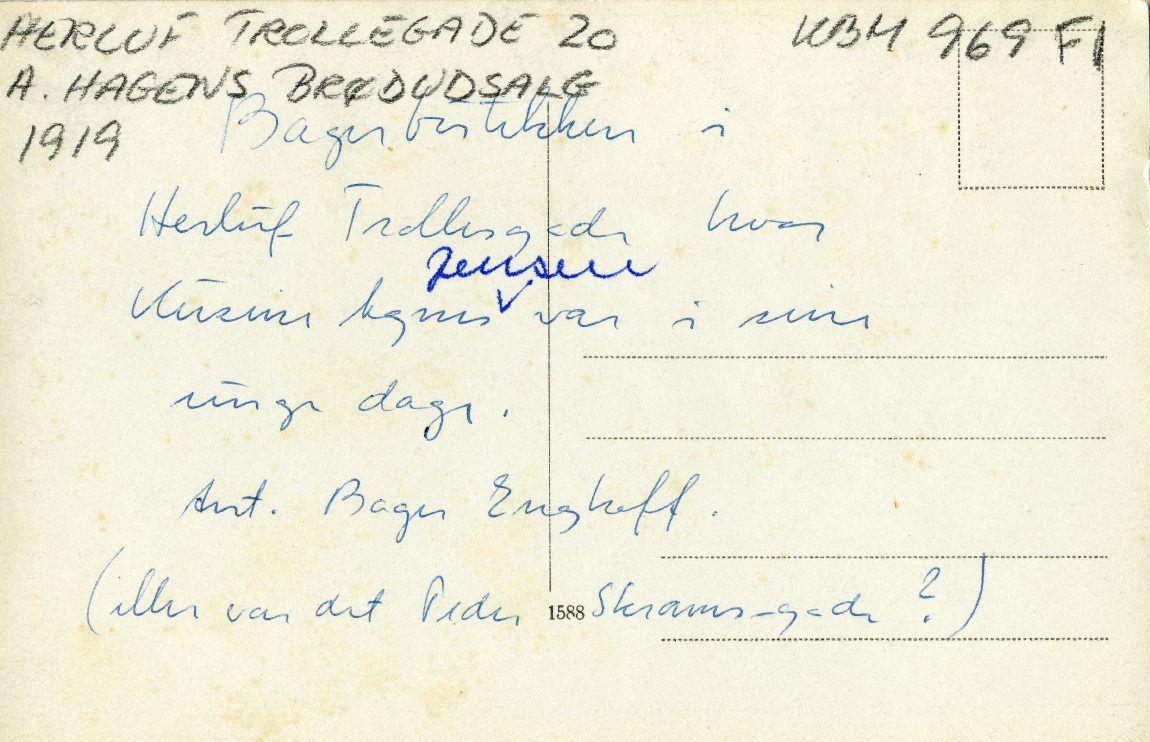 HERLUF TROLLEGADE 20 KBM 969 F1
A. HAGENS BRØDUDSALG
1919 Bagerbutikken i
Herluf Trollesgade hvor
Jensen
Kusine Agnes var i sine
unge dage.
Ant. Bager Enghoff.
(eller var det Peder Skrams-gade ?)
1588